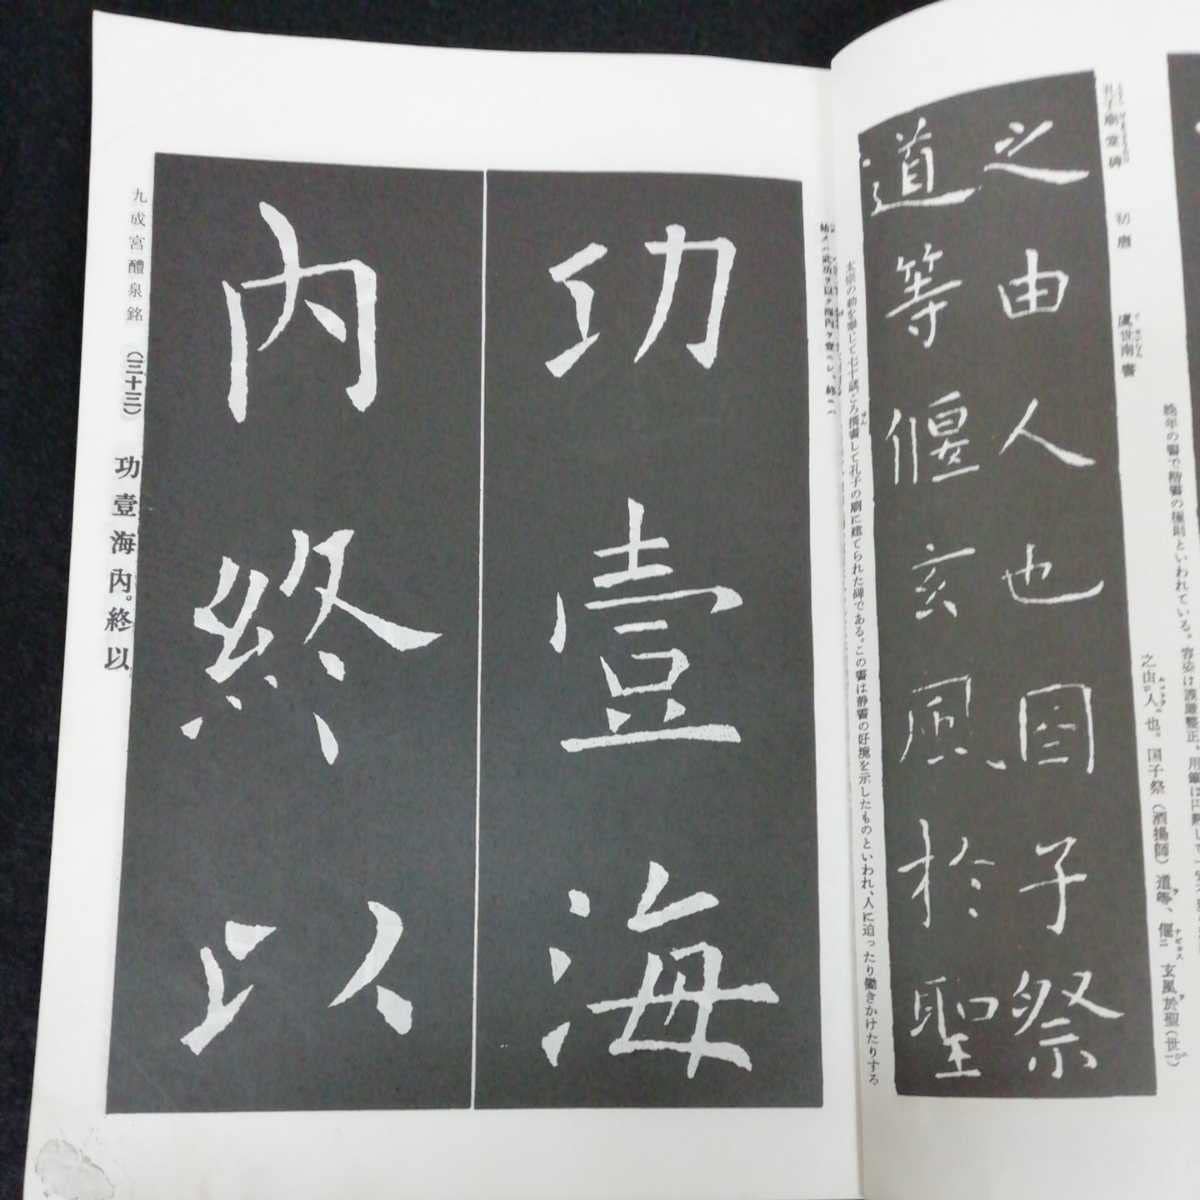 孔子廟堂碑　初唐　虞世南書
晩年の書で楷書の極則といわれている。
之由人也。国子祭(酒揚師)道等、偃玄風於聖(世)
之由人也国子祭
道等偃玄風於聖
太宗の勅を奉じて七十歳ごろ撰書して孔子の廟に建てられた碑である。この書は静書の好境を示したものといわれ、人に迫ったり働きかけたりする
功壹海
內終以
九成宮醴泉銘 (三十三) 功壹海內。終以